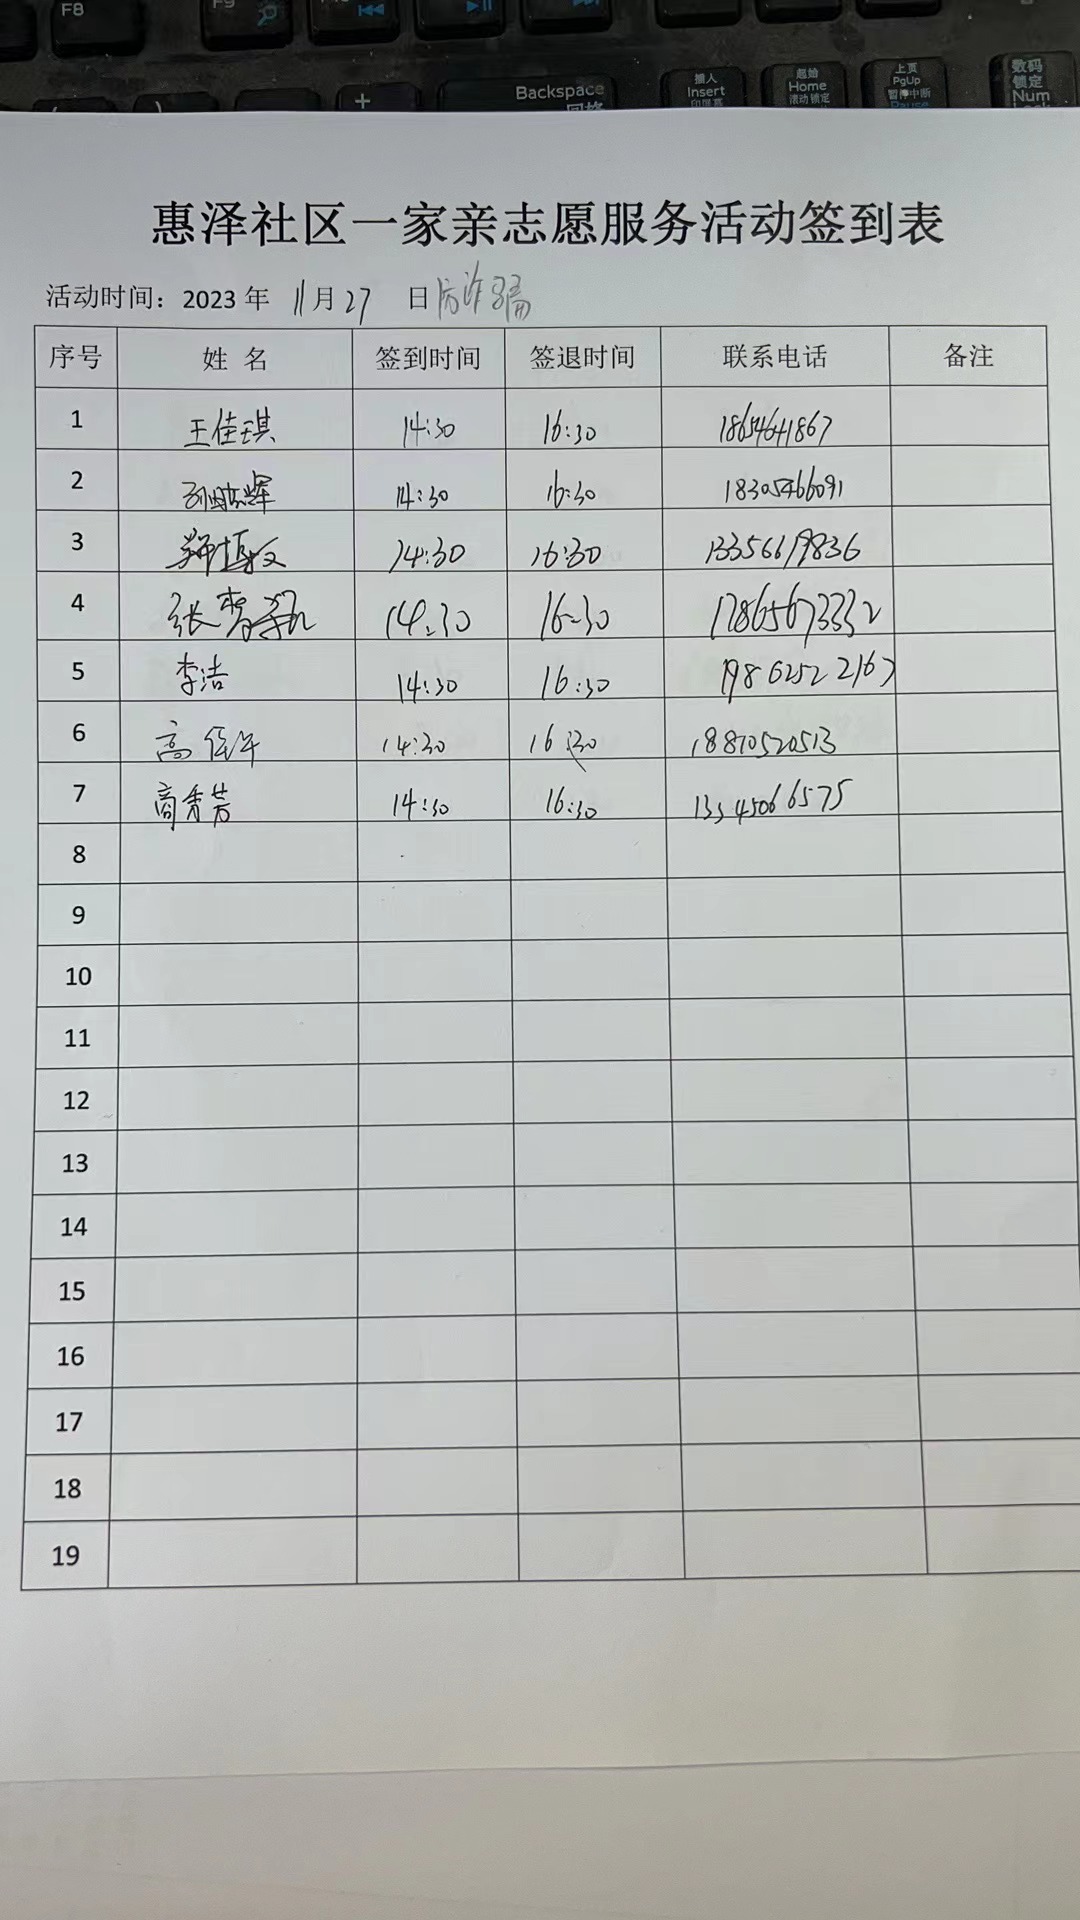 F8
F9
+
Backspace
插入
Insert
起始
Home
滚动锁定
上页
PgUp
暂停中断
Pause
数码
锁定
Num
惠泽社区一家亲志愿服务活动签到表
活动时间：2023 年 11月27 日 防诈骗
序号 姓 名 签到时间 签退时间 联系电话 备注
1 王佳琪 14:30 16:30 18654641867
2 14:30 16:30 18305466091
3 14:30 16:30 13356619836
4 张 14:30 16:30 17865673332
5 李洁 14:30 16:30 19862522167
6 高 14:30 16:30 18870520513
7 商秀芳 14:30 16:30 13345066575
8
9
10
11
12
13
14
15
16
17
18
19